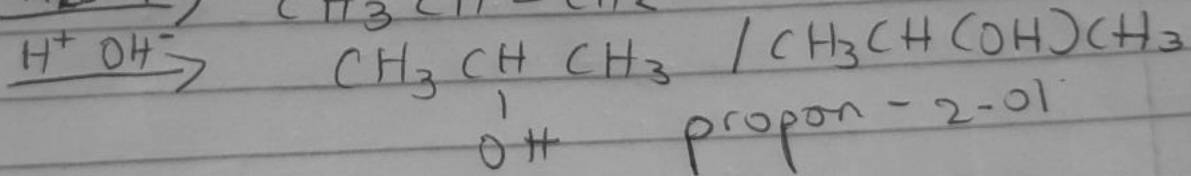 CH3 CH
H+ OH- → CH3 CH CH3 / CH3CH(OH)CH3
|
OH propon-2-ol